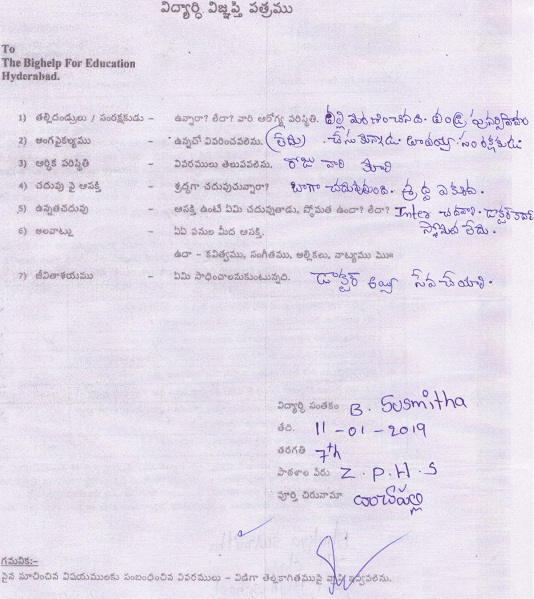 విద్యార్ధి విజ్ఞప్తి పత్రము
To
The Bighelp For Education
Hyderabad.
1) తల్లిదండ్రులు / సంరక్షకుడు - ఉన్నారా? లేరా? వారి ఆరోగ్య పరిస్థితి. తల్లి మరణించినది. తండ్రి
2) అంగవైకల్యము - ఉన్నదో వివరించవలెను. (లేదు) చేసుకున్నాడు. తాతయ్య సంరక్షకుడు
3) ఆర్ధిక పరిస్థితి - వివరములు తెలుపవలెను. రోజు వారి కూలి
4) చదువు పై ఆసక్తి - శ్రద్ధగా చదువుచున్నారా? బాగా చదువుతుంది. శ్రద్ధ ఎక్కువ.
5) ఉన్నతచదువు - ఆసక్తి ఉంటే ఏమి చదువుతాడు, స్తోమత ఉందా? లేదా? Inter చదవాలి. డాక్టర్
6) అలవాట్లు - ఏఏ పనుల మీద ఆసక్తి. స్తోమత లేదు.
ఉదా - కవిత్వము, సంగీతము, అల్లికలు, నాట్యము మొ॥
7) జీవితాశయము - ఏమి సాధించాలనుకుంటున్నది. డాక్టర్ అయ్యి సేవ చేయాలి.
విద్యార్ధి సంతకం B. Susmitha
తేది. 11-01-2019
తరగతి 7th
పాఠశాల పేరు Z.P.H.S
పూర్తి చిరునామా
గమనిక:-
పైన సూచించిన విషయములకు సంబంధించిన వివరములు - విడిగా తెల్లకాగితముపై వ్రాసి ఇవ్వవలెను.